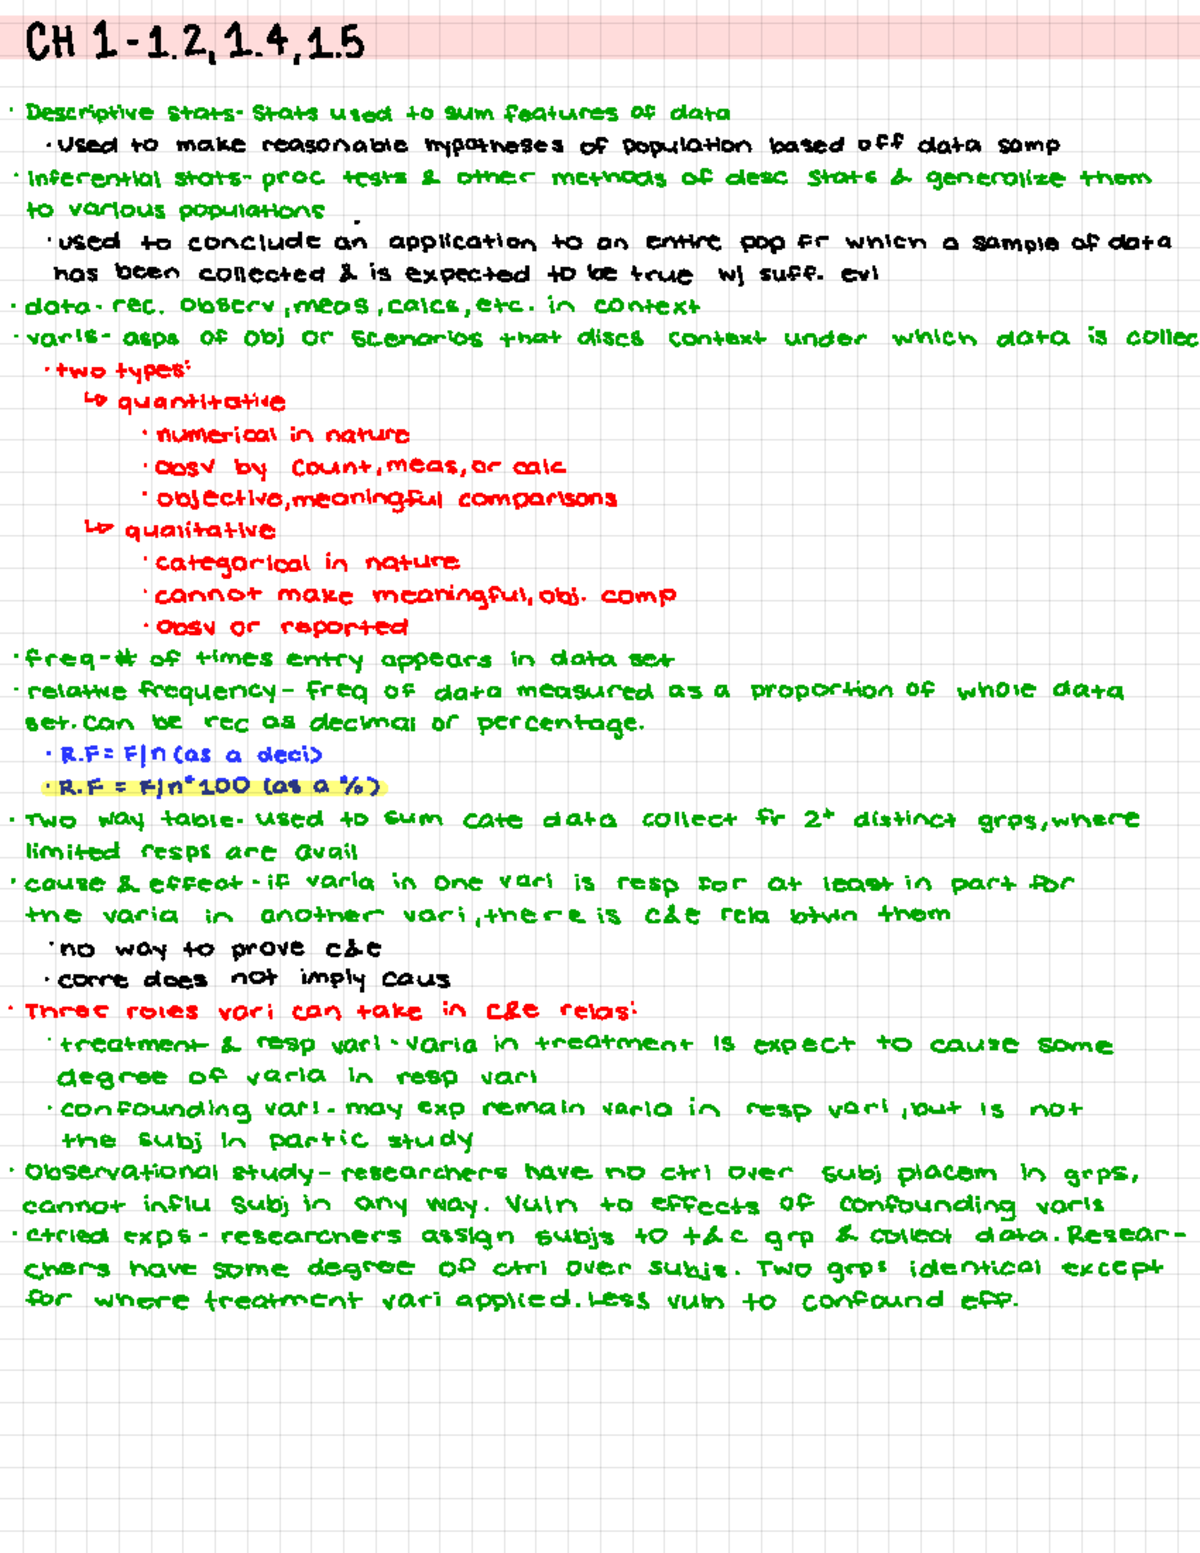 CH 1 - 1.2, 1.4, 1.5
· Descriptive Stats - Stats used to sum features of data
· used to make reasonable hypotheses of population based off data samp
· Inferential stats - proc tests & other methods of desc stats & generalize them
to various populations
· used to conclude an application to an entire pop fr which a sample of data
has been collected & is expected to be true w/ suff. evi
· data - rec. observ, meas, calcs, etc. in context
· varis - asps of obj or scenarios that discs context under which data is collec
· two types:
↳ quantitative
· numerical in nature
· obsv by count, meas, or calc
· objective, meaningful comparisons
↳ qualitative
· categorical in nature
· cannot make meaningful, obj. comp
· obsv or reported
· freq - # of times entry appears in data set
· relative frequency - freq of data measured as a proportion of whole data
set. Can be rec as decimal or percentage.
· R.F = F/n (as a deci)
· R.F = F/n * 100 (as a %)
· Two way table - used to sum cate data collect fr 2+ distinct grps, where
limited resps are avail
· cause & effect - if varia in one vari is resp for at least in part for
the varia in another vari, there is c&e rela btwn them
· no way to prove c&e
· corre does not imply caus
· Three roles vari can take in c&e relas:
· treatment & resp vari - varia in treatment is expect to cause some
degree of varia in resp vari
· confounding vari - may exp remain varia in resp vari, but is not
the subj in partic study
· Observational study - researchers have no ctrl over subj placem in grps,
cannot influ subj in any way. Vuln to effects of confounding varis
· ctrled exps - researchers assign subjs to t&c grp & collect data. Resear-
chers have some degree of ctrl over subjs. Two grps identical except
for where treatment vari applied. Less vuln to confound eff.